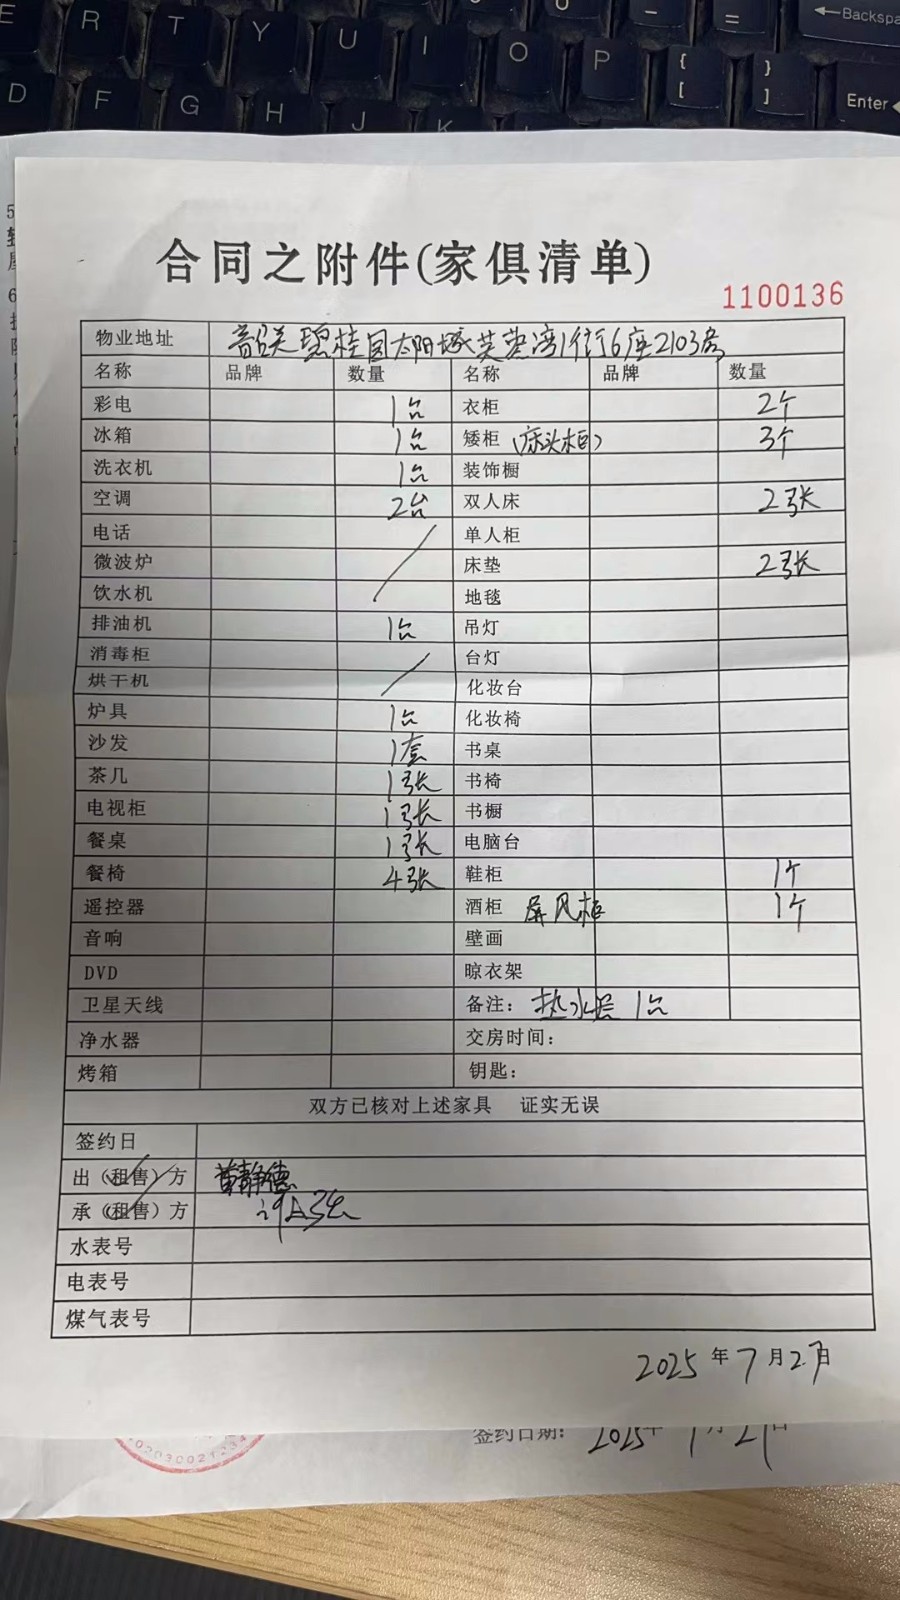 E R T Y U I O P { [ } ] - = Backspa
D F G H J K Enter
合同之附件(家俱清单)
1100136
物业地址 韶关碧桂园太阳城芙蓉湾1街6座2103房
名称 品牌 数量 名称 品牌 数量
彩电 1台 衣柜 2个
冰箱 1台 矮柜(床头柜) 3个
洗衣机 1台 装饰橱
空调 2台 双人床 2张
电话 单人柜
微波炉 床垫 2张
饮水机 地毯
排油机 1台 吊灯
消毒柜 台灯
烘干机 化妆台
炉具 1台 化妆椅
沙发 1套 书桌
茶几 1张 书椅
电视柜 1张 书橱
餐桌 1张 电脑台
餐椅 4张 鞋柜 1个
遥控器 酒柜 屏风柜 1个
音响 壁画
DVD 晾衣架
卫星天线 备注: 热水器 1台
净水器 交房时间:
烤箱 钥匙:
双方已核对上述家具 证实无误
签约日
出(租售)方 黄静德
承(租售)方
水表号
电表号
煤气表号
2025年7月27日
签约日期: 2025年7月27日